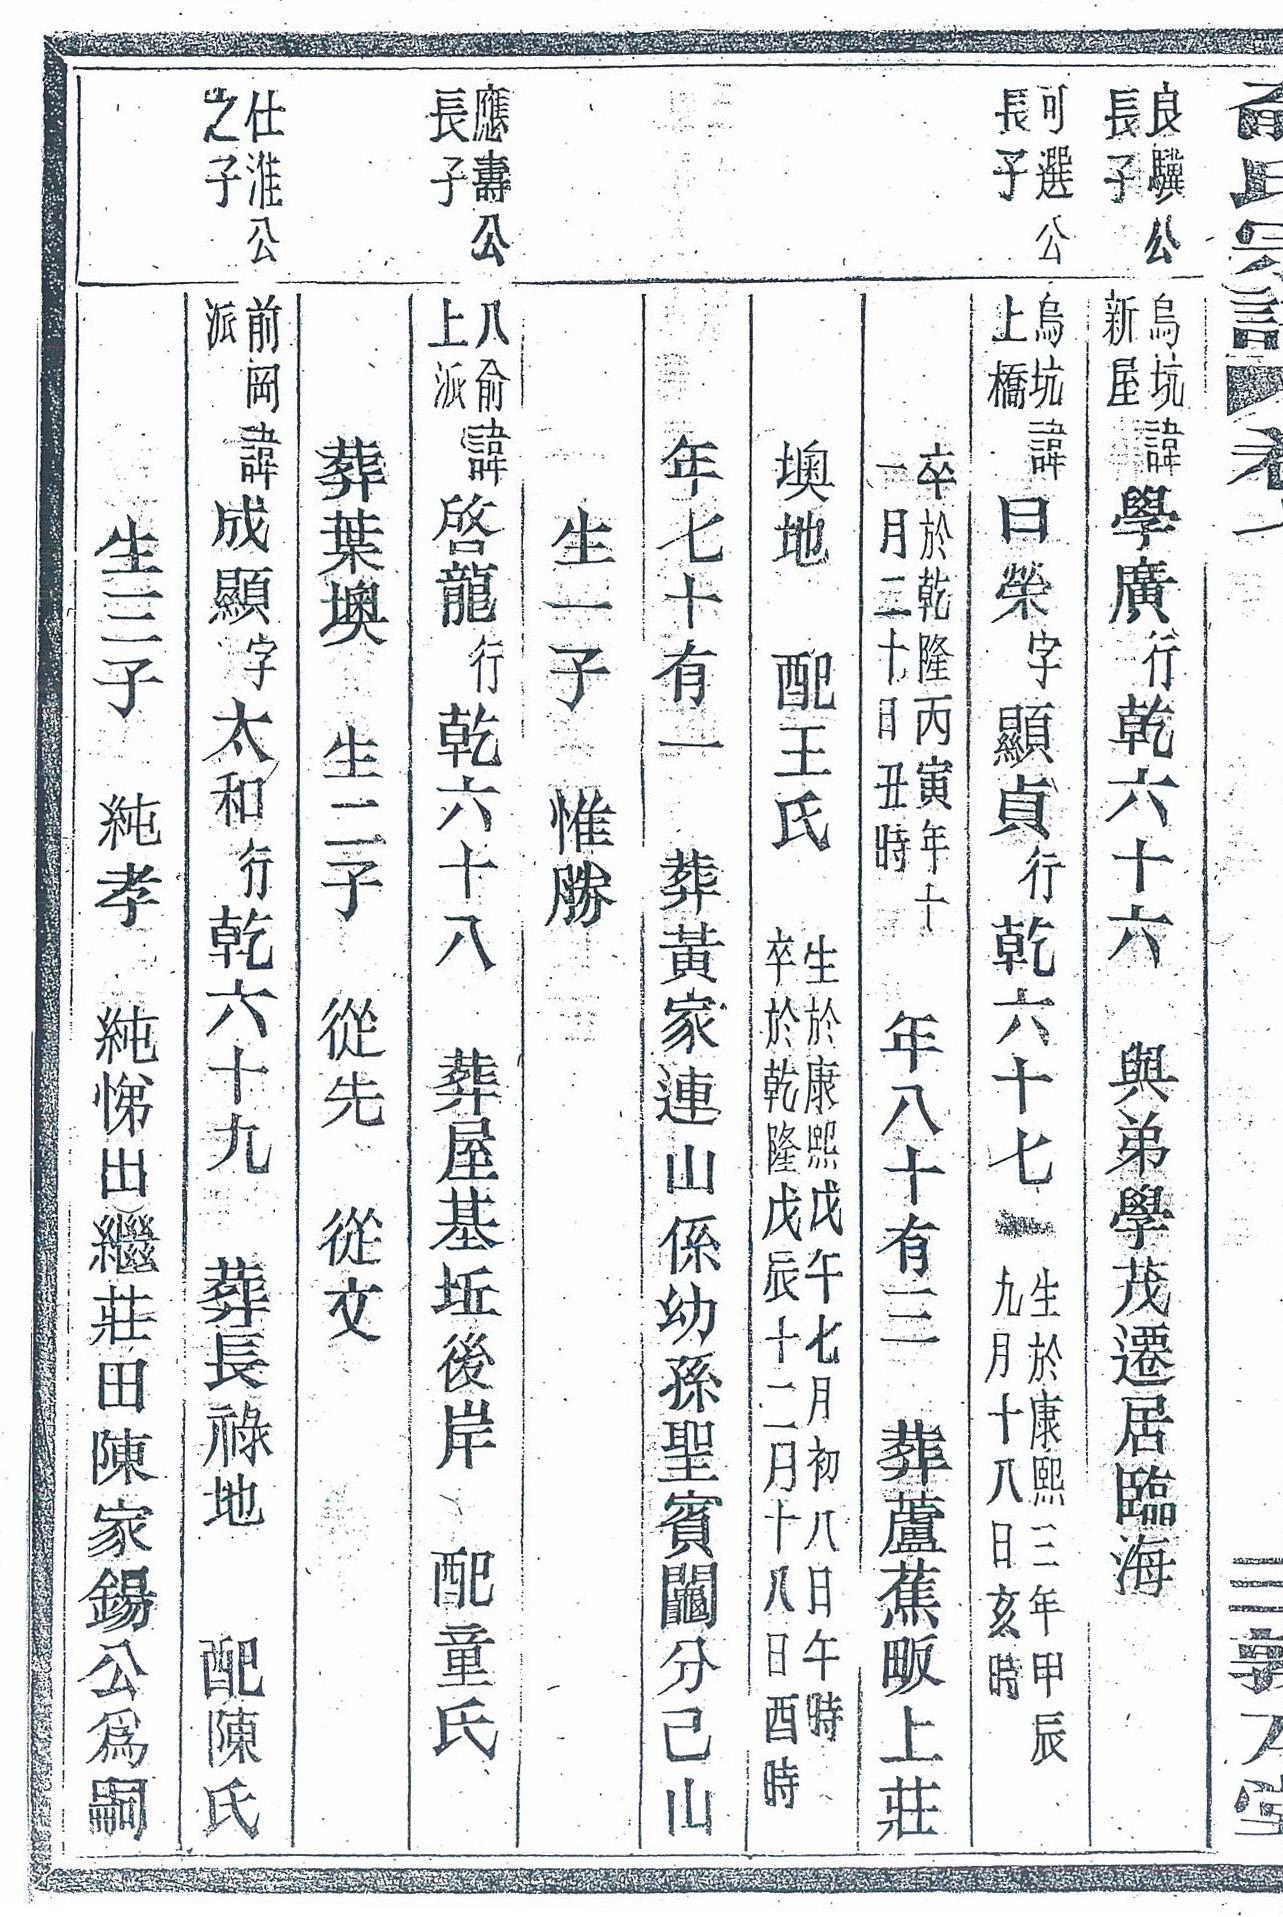 良驥公長子
烏坑新屋諱學廣行乾六十六　與弟學茂遷居臨海
可選公長子
烏坑上橋諱日榮字顯貞行乾六十七　生於康熙三年甲辰九月十八日亥時
卒於乾隆丙寅年十一月二十日丑時　年八十有三　葬蘆蕉畈上莊
墺地　配王氏　生於康熙戊午七月初八日午時卒於乾隆戊辰十二月十八日酉時
年七十有一　葬黃家連山係幼孫聖賓鬮分己山
生一子　惟勝
應壽公長子
八俞上派諱啓龍行乾六十八　葬屋基坵後岸　配童氏
葬葉墺　生二子　從先　從文
仕淮公之子
前岡派諱成顯字太和行乾六十九　葬長祿地　配陳氏
生三子　純孝　純悌出繼莊田陳家錫公爲嗣